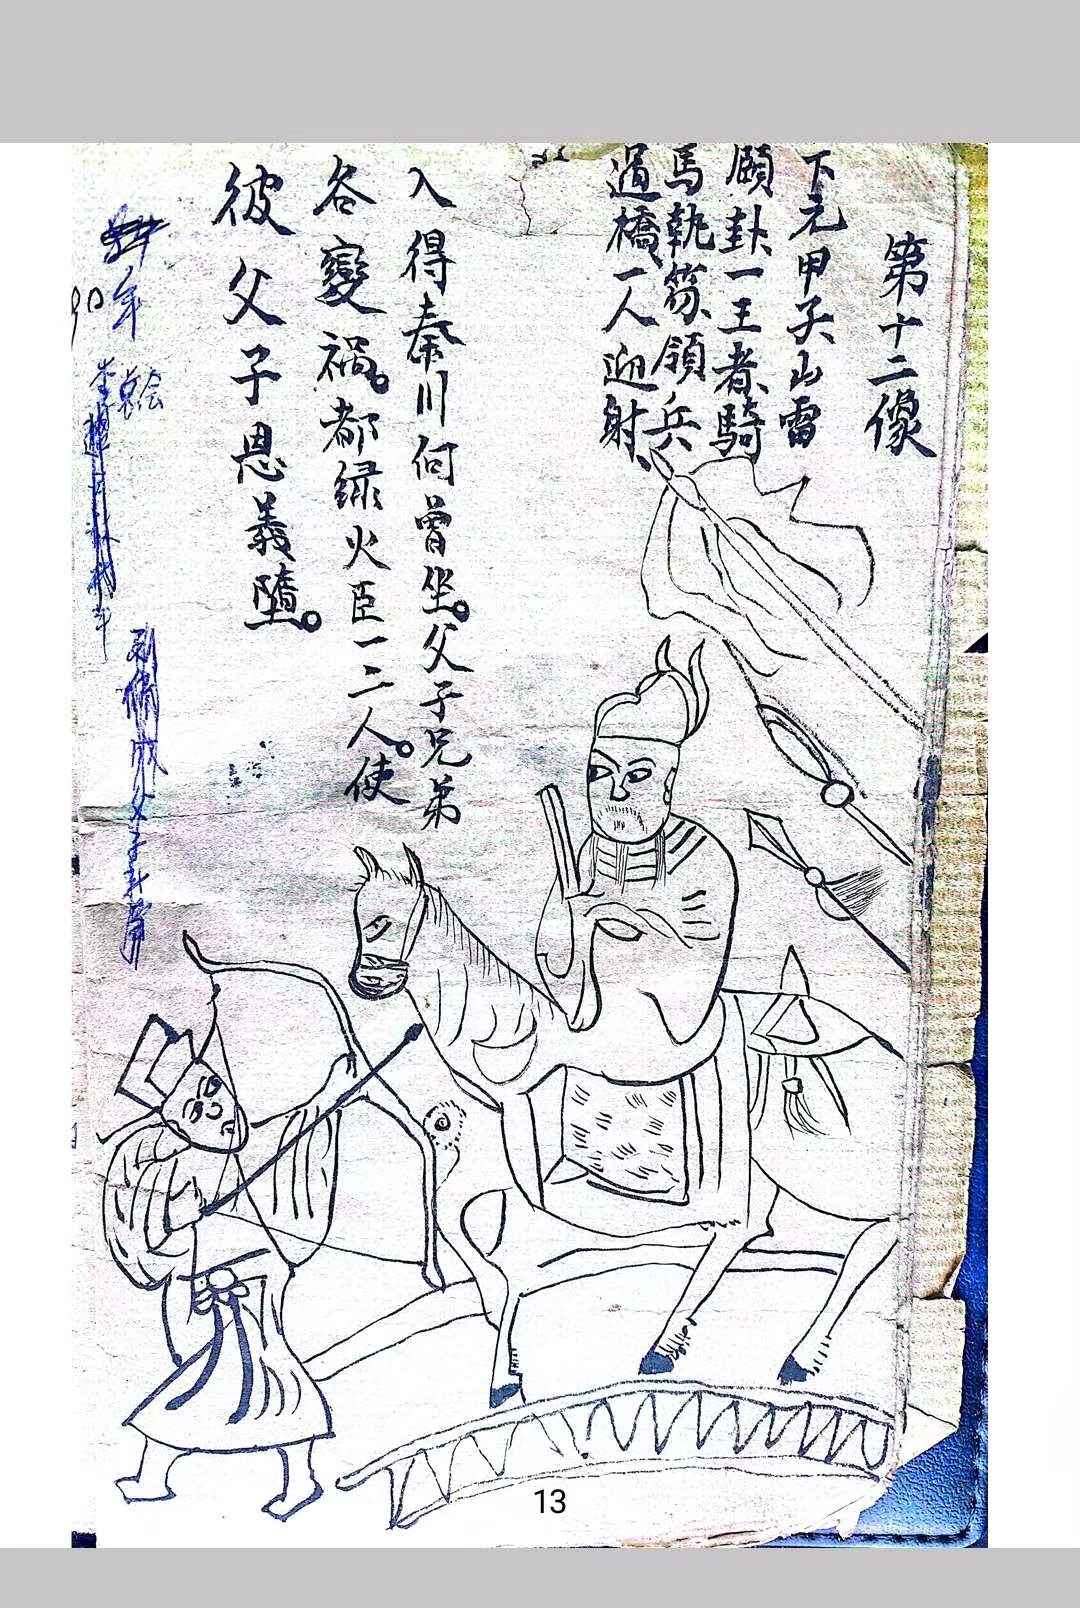 第十二像
下元甲子山雷
頤卦一王者騎
馬執笏領兵
過橋一人迎射、
入得秦川何曾坐。父子兄弟
谷變祸。都緑火臣一二人。使
彼父子恩義墮。
年
绘
13